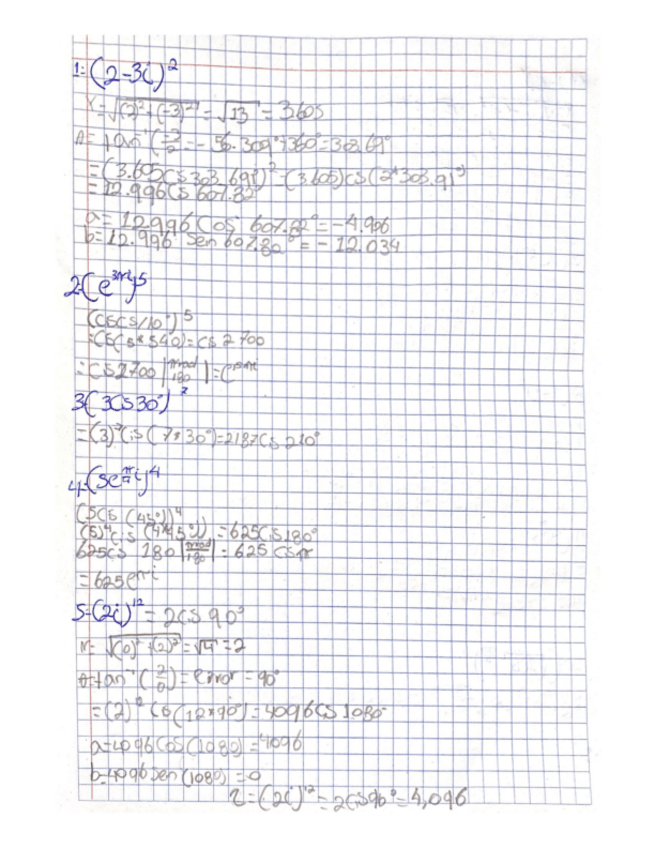 1=(2-3i)²
r=√(2)²+(-3)²=√13=3605
θ=tan⁻¹(-3/2=-56.309°+360°=303.69°
=(3.605Cis303.69°)²=(3.605)Cis(2*303.91°)
=12.996Cis 607.82°
a=12.996 Cos 607.82°=-4.906
b=12.996 sen 607.82°=-12.034
2(e³πi)5
=Cis(5*540)=Cis2700
=Cis2700|πrad/180|=
3(3Cis30°)⁷
=(3)⁷Cis(7*30°)=2187Cis210°
4=(5e^π/4 i)4
(5Cis(45°))⁴
(5)⁴Cis(4*45°))=625Cis180°
625Cis 180|πrad/180|=625Cisπ
=625eπi
5=(2i)¹²=2Cis90°
r=√(0)²+(2)²=√4=2
θ=tan⁻¹(2/0)=Error=90°
=(2)¹²Cis(12*90°)=4096Cis1080°
a=4096Cos(1080)=4096
b=4096sen(1080)=0
z=(2i)¹²=2Cis90°=4,096